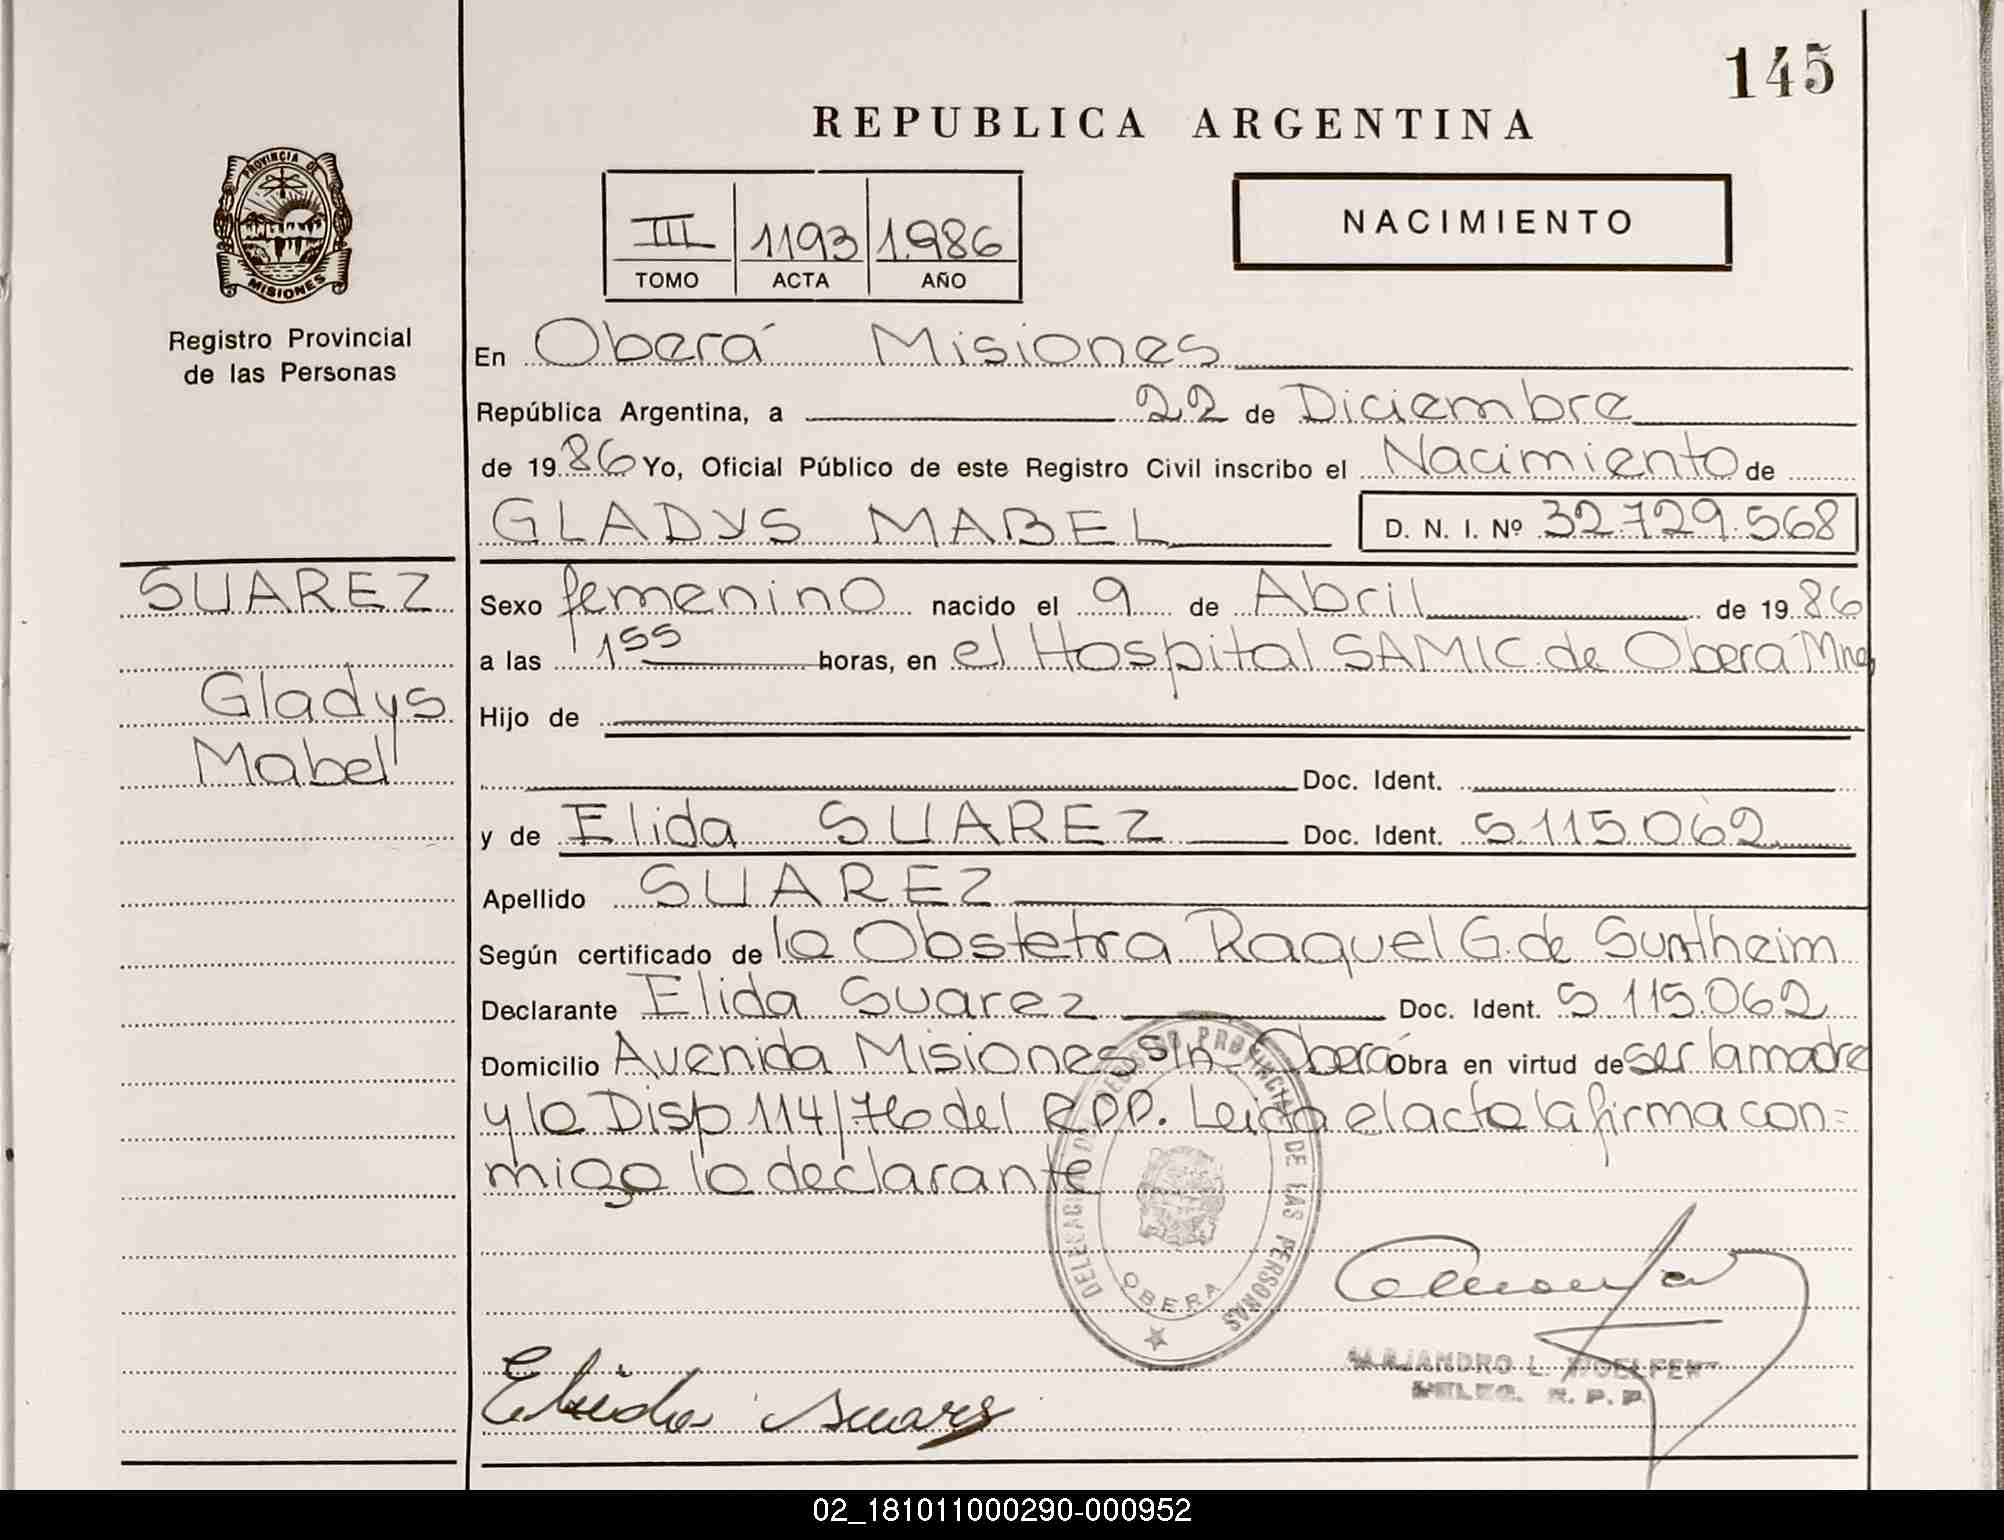 145
REPUBLICA ARGENTINA
PROVINCIA DE
MISIONES
Registro Provincial
de las Personas
III 1193 1.986
TOMO ACTA AÑO
NACIMIENTO
En Oberá Misiones
República Argentina, a 22 de Diciembre
de 1986 Yo, Oficial Público de este Registro Civil inscribo el Nacimiento de
GLADYS MABEL D. N. I. Nº 32.729.568
SUAREZ
Gladys
Mabel
Sexo femenino nacido el 9 de Abril de 1986
a las 155 horas, en el Hospital SAMIC de Oberá Mnes
Hijo de
Doc. Ident.
y de Elida SUAREZ Doc. Ident. 5.115.062
Apellido SUAREZ
Según certificado de la Obstetra Raquel G. de Suntheim
Declarante Elida Suarez Doc. Ident. 5.115.062
Domicilio Avenida Misiones S/n Oberá Obra en virtud de ser la madre
y la Disp 114/76 del R.P.P. Leida el acta la firma con=
migo la declarante
DELEGACION DE REGISTRO PROVINCIAL DE LAS PERSONAS
OBERA
Elida Suarez
ALEJANDRO L.
DELEG. R. P. P.
02_181011000290-000952